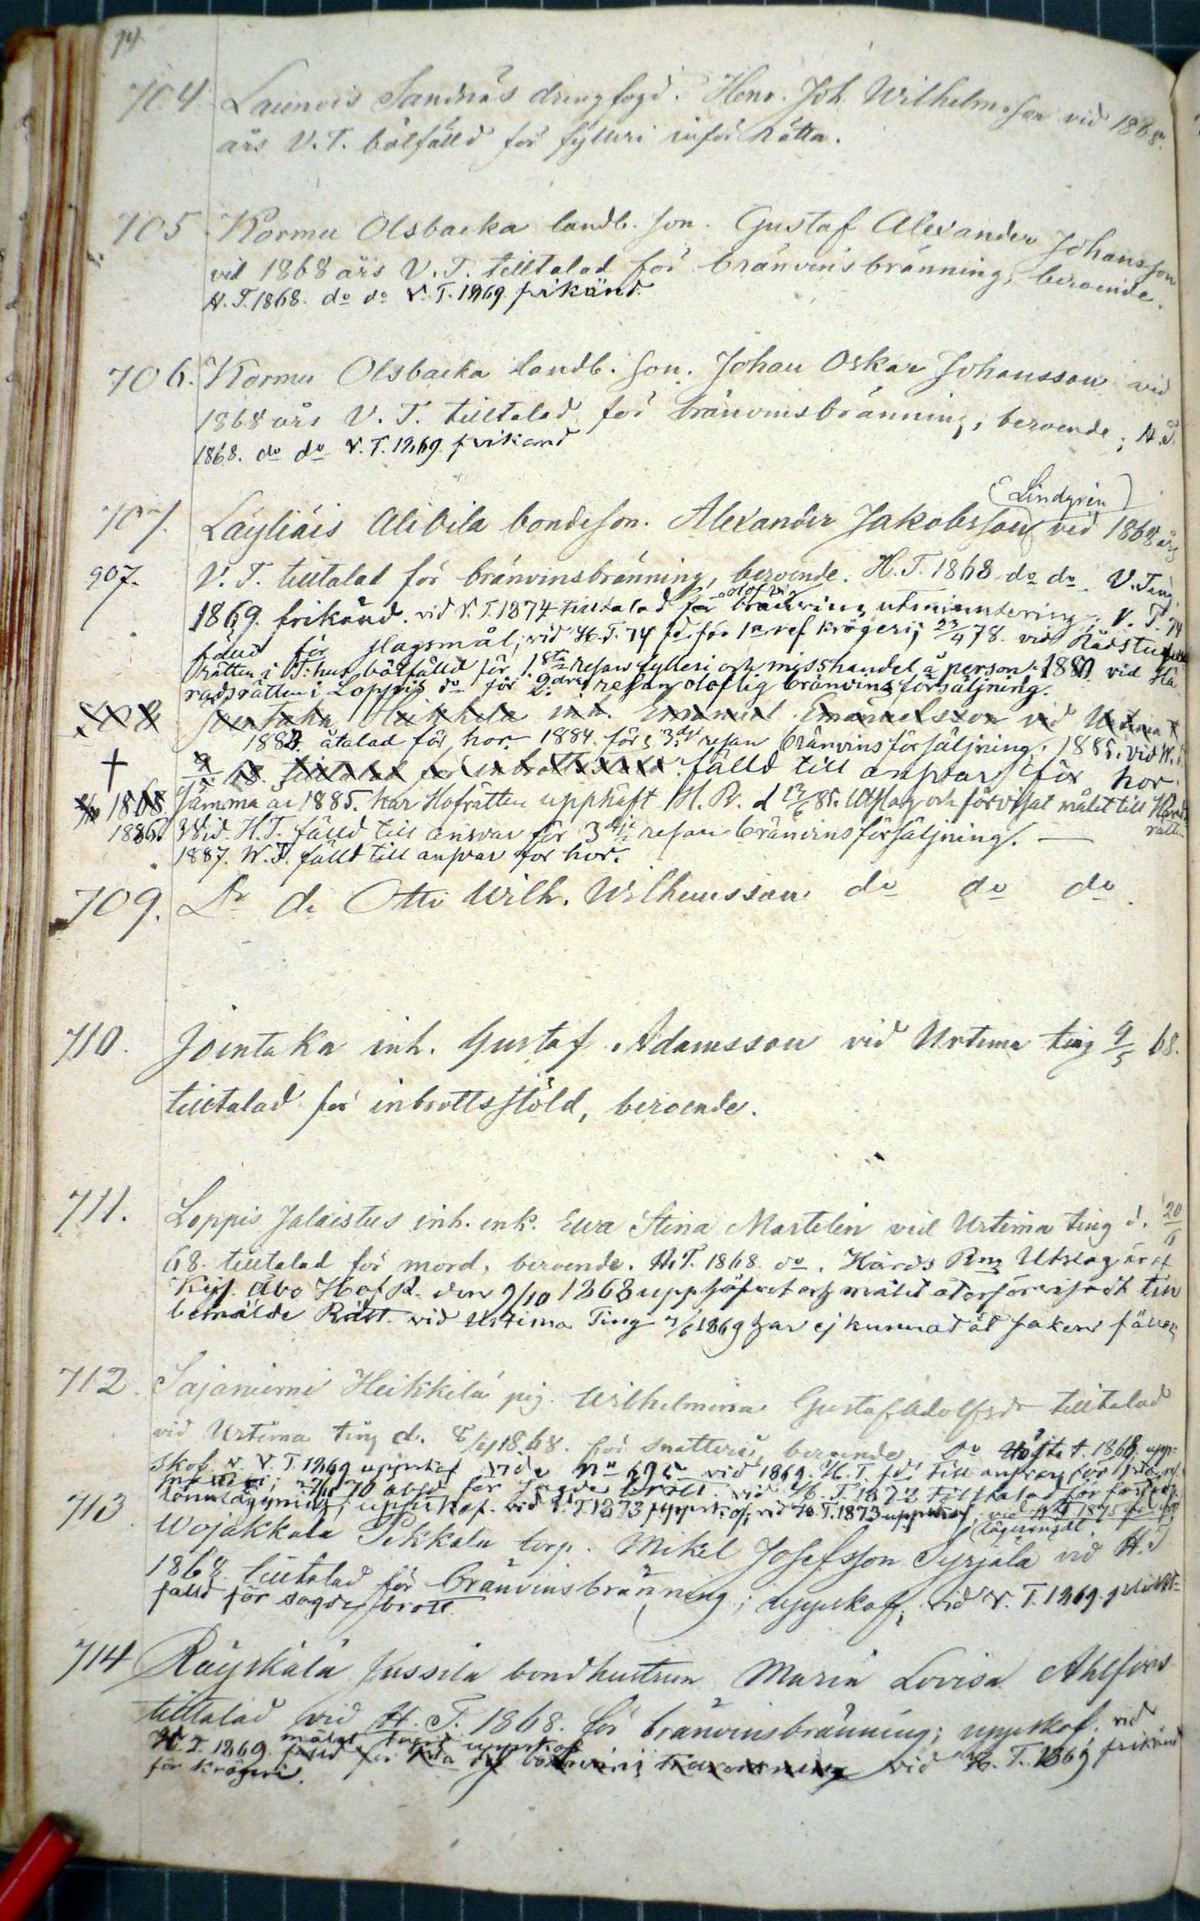 704. Launois Sandnäs drengfogd. Henr. Joh. Wilhelmsson vid 1868
års V. T. bötfälld för fylleri inför Rätta.
705 Kormu Olsbacka landb. son. Gustaf Alexander Johansson
vid 1868 års V. T. tilltalad för bränvinsbränning, beroende.
H. T. 1868. do do V. T. 1869. frikänd.
706. Kormu Olsbacka landb. son. Johan Oskar Johansson vid
1868 års V. T. tilltalad för bränvinsbränning, beroende; H. T.
1868. do do V. T. 1869 frikänd
(Lindgrén)
707. Läyliäis Alitila bondeson. Alexander Jakobsson vid 1868 års
907. V. T. tilltalad för bränvinsbränning, beroende. H. T. 1868 do do. V. Ting
1869. frikänd. vid V. T. 1874 tilltalad för olofl. bränvins utminutering; V. T. 74
fälld för slagsmål; vid H. T. 74 fd. för 1a ref krögeri; 23/4 78. vid Rådstufvu
Rätten i T:hus bötfälld för 1sta resan fylleri och misshandel å person; 1880. vid Hä-
radsrätten i Loppis do för 2dra resan oloflig bränvins försäljning.
inh. Emanuel Emanuelsson vid Urtima t
1883. åtalad för hor. 1884. för 3dje resan bränvinsförsäljning. 1885. vid W.
† fälld till ansvar för hor
1868 Samma år 1885. har Hofrätten upphäft H. R. d 13/6 85. Utslag och förvisat målet till Härads
rätten
1886. Vid. H. T. fälld till ansvar för 3dje resan bränvinsförsäljning. —
1887. W. T. fälld till ansvar för hor.
709. Do do Otto Wilh. Wilhemsson do do do.
710. Jointaka inh. Gustaf Adamsson vid Urtima ting 9/5 68.
tilltalad för inbrottsstöld, beroende.
711. Loppis Jalaistus inh. enk. Ewa Stina Martelin vid Urtima ting d. 20/6
68. tilltalad för mord, beroende. H. T. 1868. do. Härds Rns Utslag är af
Kejs. Åbo Hof R. den 9/10 1868 upphäfvet och målet återförvisadt till
bemälde Rätt. vid Urtima Ting 7/6 1869 har ej kunnat åt saken fällas
712. Sajaniemi Heikkilä pig. Wilhelmina Gustaf Adolfsdr tilltalad
vid Urtima ting d. 8/4 1868. för snatteri, beroende. Do Hösta t. 1868. upp-
skof. v. V. T. 1869 uppskof vide No 695 vid 1869. H. T. fd. till ansvar för
70 för sagda brott. vid T. 1872 tilltalad för
lönnlägning; uppskof. vid V. T. 1873 uppskof; vid H. T. 1873 uppskof; vid H T 1875
lägersmål.
713 Wojakkala Pekkala torp. Mikel Josefsson Syrjälä vid H. T
1868. tilltalad för bränvinsbränning; uppskof; vid V. T. 1869. plikt-
fälld för sagde brott.
714 Räyskälä Jussila bondhustrun Maria Lovisa Ahlfors
tilltalad vid H. T. 1868. för bränvinsbränning; uppskof. vid
målet uppskof
H. T. 1869 fälld för vid H. T. 1869 frikänd
för krögeri.